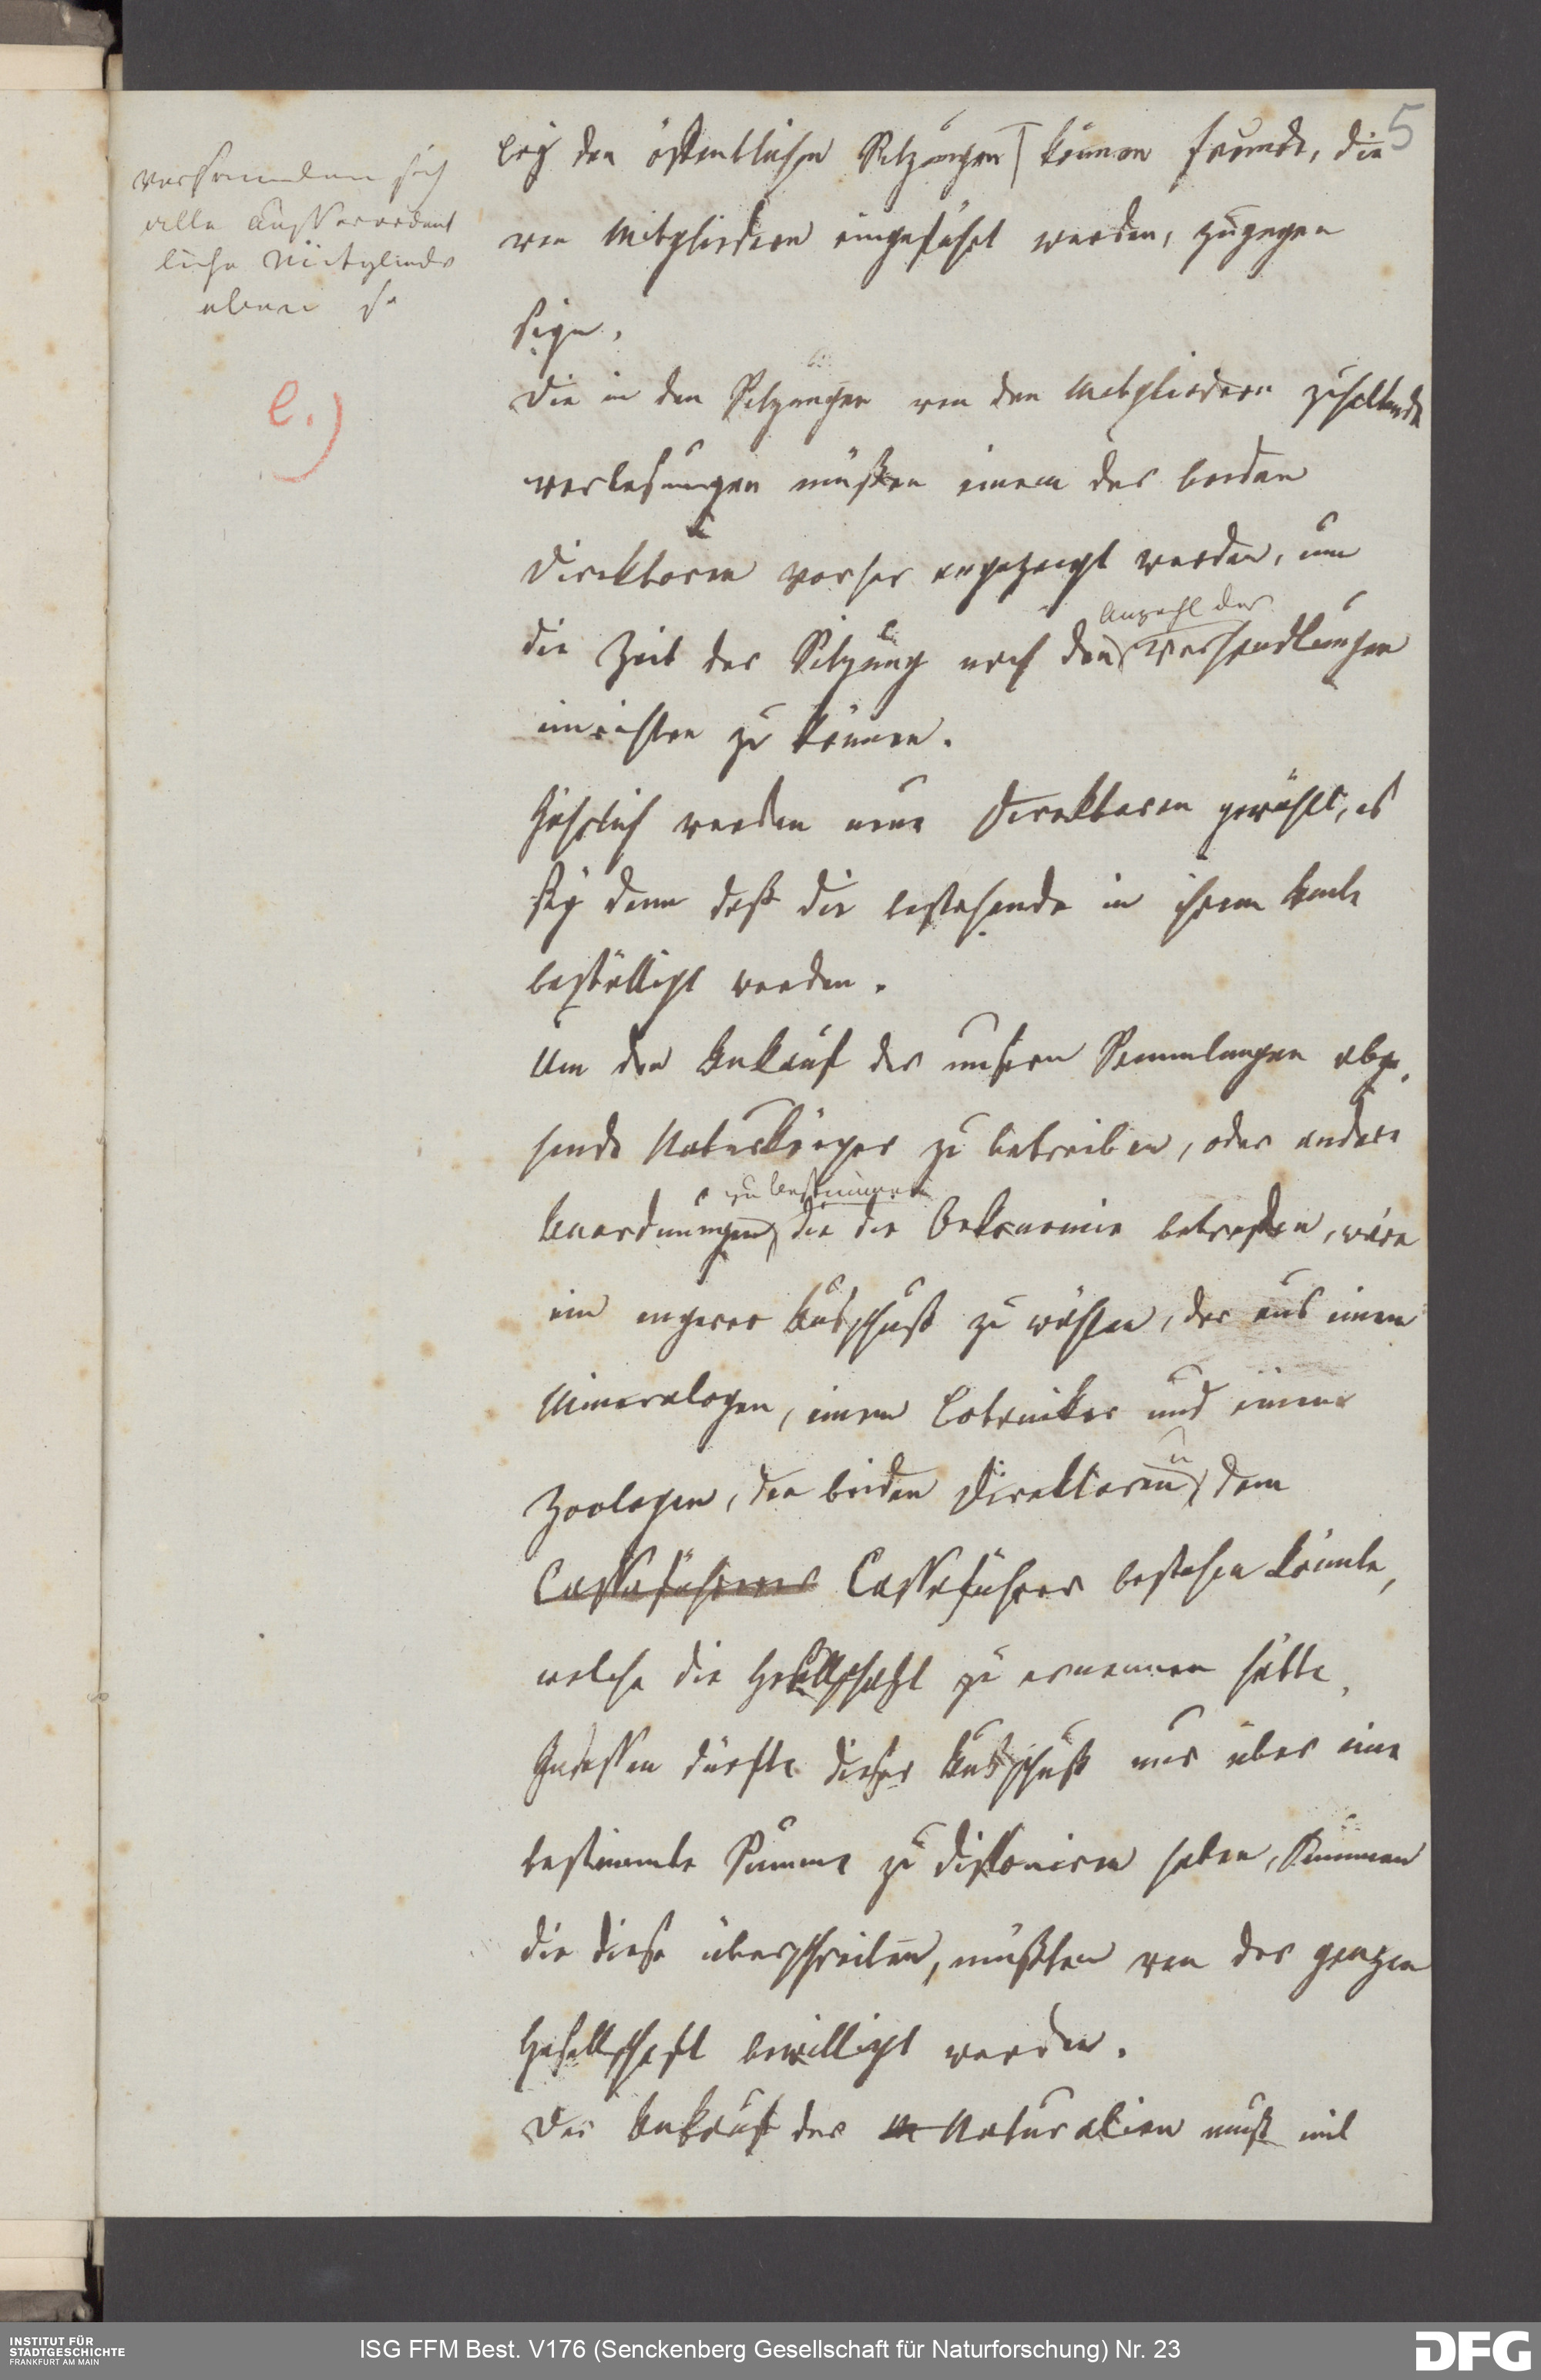 5
versammlen sich
alle ausserordent
liche Mitglieder
eben so
e.)
beÿ den öffentlichen Sitzungen können fremde, die
von Mitgliedern eingeführt werden, zugegen
seÿn.
Die in den Sitzungen von den Mitgliedern zuhaltende
Vorlesungen müßen einem der beiden
Direktoren vorher angezeigt werden, um
Anzahl der
die Zeit der Sitzung nach den Verhandlungen
einrichten zu können.
Jährlich werden neue Direktoren gewählt, es
seÿ denn daß die bestehende in ihrem Amte
bestättigt werden.
Um den Ankauf der unsern Sammlungen abge,
hende Naturkörper zu betreiben, oder andere
zu bestimmen
Anordnungen die die Oekonomie betreffen, wäre
ein engerer Ausschuß zu wählen, der aus einem
Mineralogen, einem Botaniker und einem
Zoologen, den beiden Direktoren u dem
Cassaführer Cassaführer bestehen könnte,
welche die Gesellschaft zu ernennen hätte,
Indessen dürfte dieser Ausschuß nur über eine
bestimmte Summe zu disponiren haben, Summen
die diese überschreiten, müßten von der ganzen
Gesellschaft bewilligt werden.
Der Ankauf der Naturalien muß mit
INSTITUT FÜR
STADTGESCHICHTE
FRANKFURT AM MAIN
ISG FFM Best. V176 (Senckenberg Gesellschaft für Naturforschung) Nr. 23
DFG